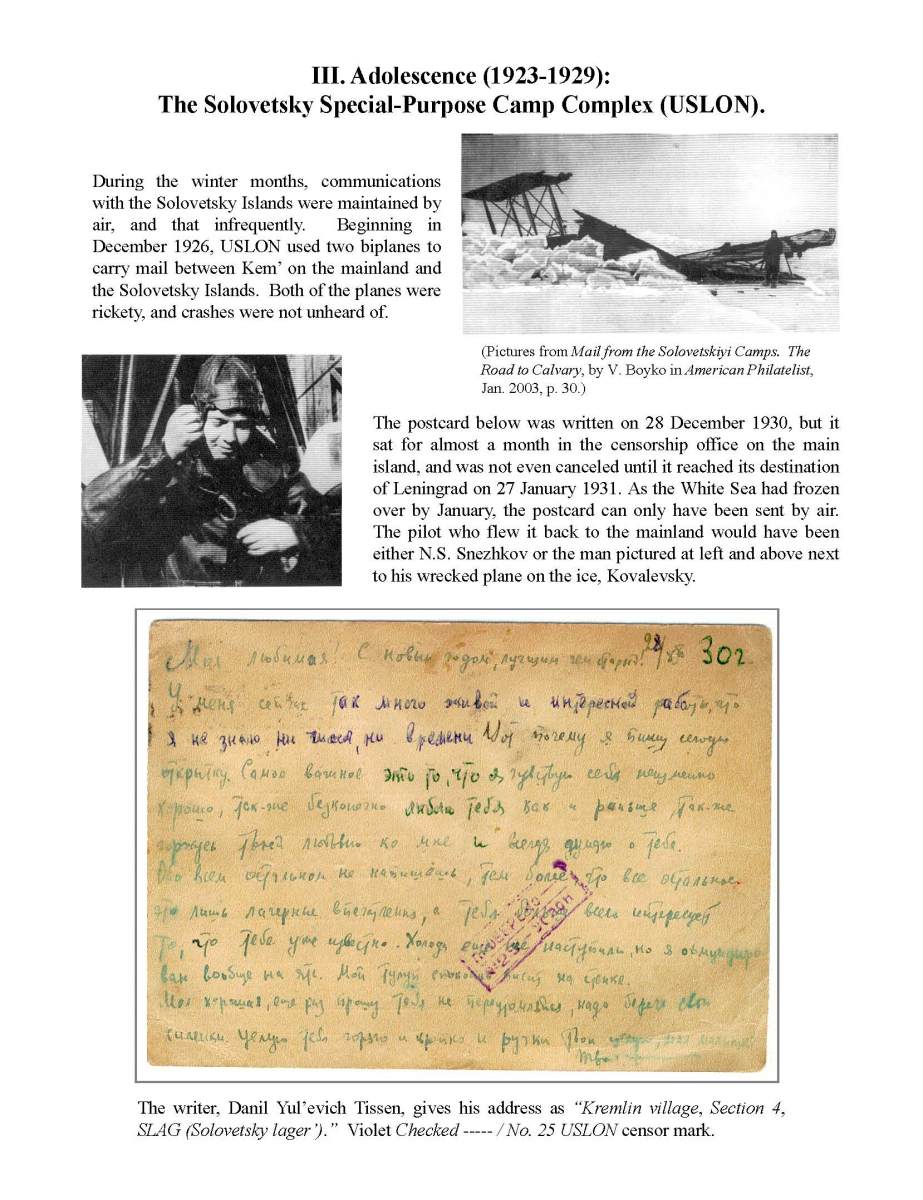 III. Adolescence (1923-1929):
The Solovetsky Special-Purpose Camp Complex (USLON).
During the winter months, communications
with the Solovetsky Islands were maintained by
air, and that infrequently. Beginning in
December 1926, USLON used two biplanes to
carry mail between Kem’ on the mainland and
the Solovetsky Islands. Both of the planes were
rickety, and crashes were not unheard of.
(Pictures from Mail from the Solovetskiyi Camps. The
Road to Calvary, by V. Boyko in American Philatelist,
Jan. 2003, p. 30.)
The postcard below was written on 28 December 1930, but it
sat for almost a month in the censorship office on the main
island, and was not even canceled until it reached its destination
of Leningrad on 27 January 1931. As the White Sea had frozen
over by January, the postcard can only have been sent by air.
The pilot who flew it back to the mainland would have been
either N.S. Snezhkov or the man pictured at left and above next
to his wrecked plane on the ice, Kovalevsky.
Моя любимая! С новым годом, лучшим чем
У меня сейчас так много живой и интересной работы, что
я не знаю ни числа, ни времени Вот почему я пишу сегодня
открытку. Самое важное это то, что я чувствую себя неизменно
хорошо, так-же безконечно люблю тебя как и раньше, так-же
горжусь твоей любовью ко мне и всегда думаю о тебе.
Обо всем остальном не напишешь, тем более что все остальное
это лишь лагерные впечатления, а тебя больше всего интересует
то, что тебе уже известно. Холода еще не наступали, но я обмундиро
ван вообще на ять. Мой тулуп спокойно висит на стенке.
Моя хорошая, еще раз прошу тебя не переутомляться, надо беречь свои
силенки. Целую тебя горячо и крепко и ручки Твои
ПРОВЕРЕНО
УСЛОН
The writer, Danil Yul’evich Tissen, gives his address as “Kremlin village, Section 4,
SLAG (Solovetsky lager’).” Violet Checked ----- / No. 25 USLON censor mark.